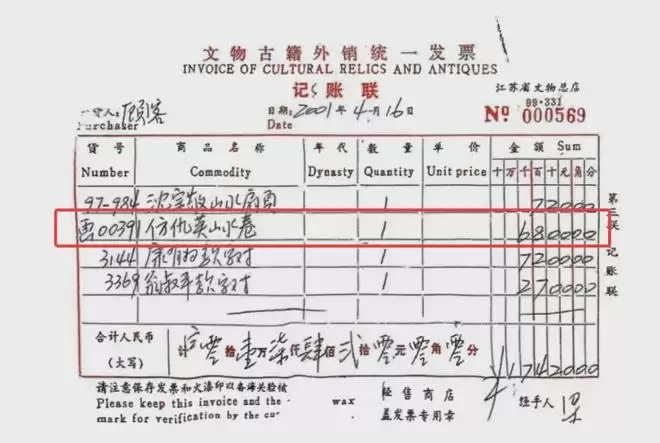 文物古籍外销统一发票
INVOICE OF CULTURAL RELICS AND ANTIQUES
记账联
江苏省文物总店
99·331
购货人: 顾客
Purchaser
日期: 2001年4月16日
Date
№ 000569
货号 商品名称 年代 数量 单价 金额 Sum
Number Commodity Dynasty Quantity Unit price 十万千百十元角分
97-984 沈宗敬山水扇页 1 72000
画00391 仿仇英山水卷 1 680000
3144 康有为款字对 1 720000
3369 翁叔平款字对 1 270000
合计人民币
(大写)
计 零拾壹万柒仟肆佰贰拾零元零角零分 ¥1742000
第三联 记账联
请注意保存发票和火漆印以备海关验候
Please keep this invoice and the wax
mark for verification by the cur
经售商店
盖发票专用章
经手人